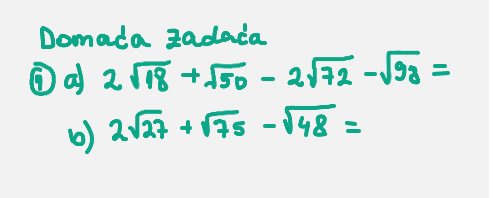 Domaća zadaća
① a) 2√18 + √50 - 2√72 - √98 =
b) 2√27 + √75 - √48 =